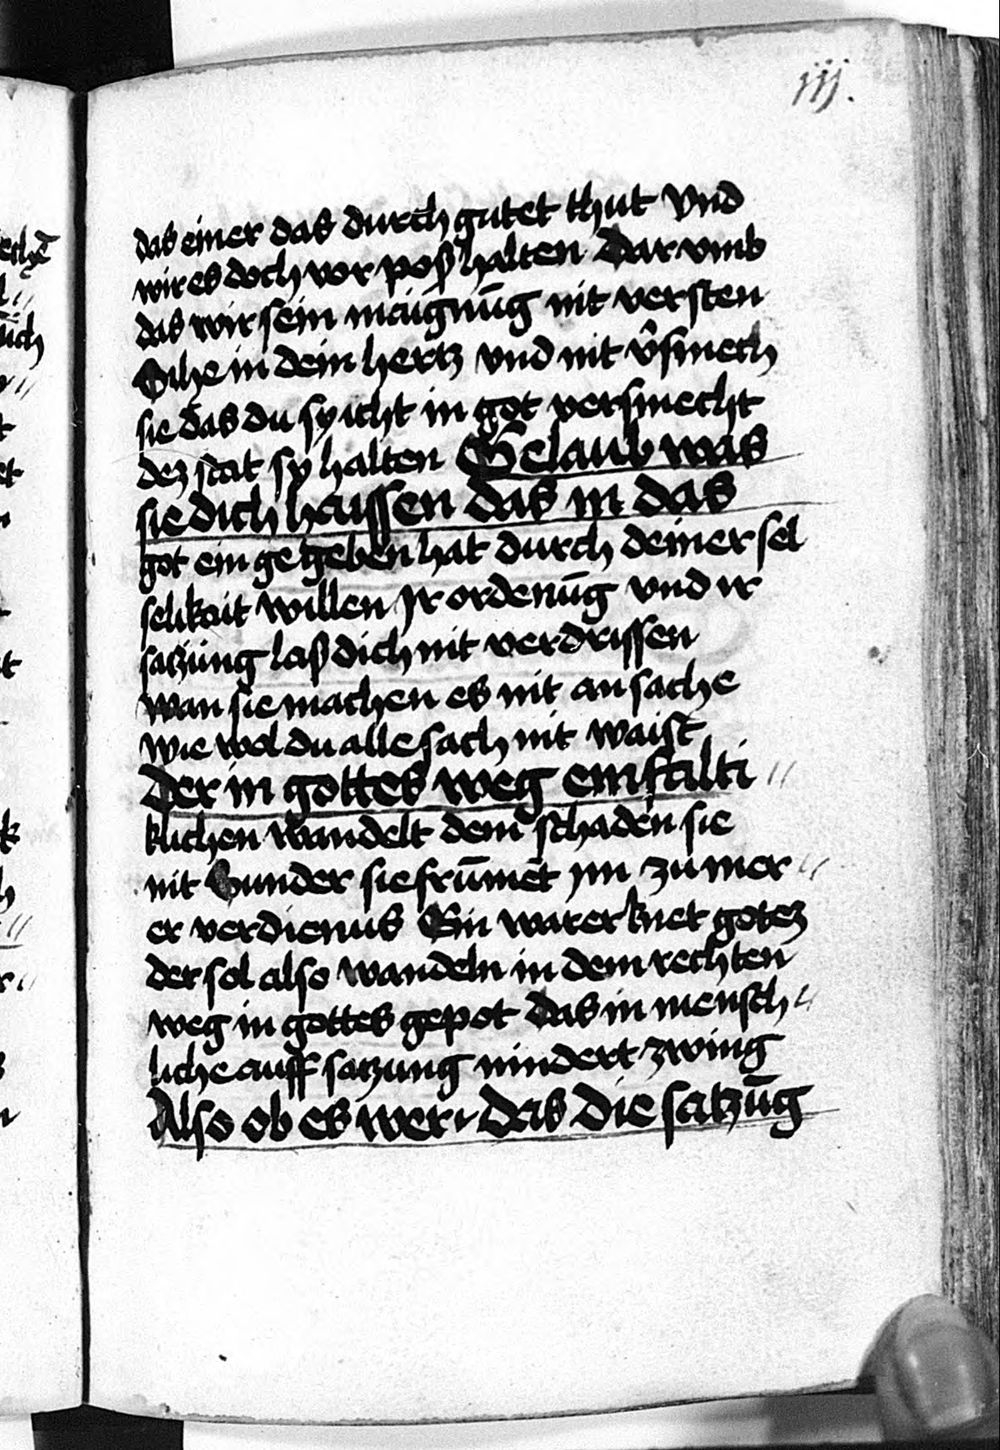 iij.
das einer das durch gutet thut vnd
wir es doch vor poß halten Dar vmb
das wir sein maignūg nit versten
Sihe in dein hertz vnd nit v̄smech
sie das du sy icht in got versmecht
dez stat sy halten Gelaub was
sie dich haissen das in das
got ein ge geben hat durch deiner sel
selikait willen Jr ordenūg vnd ir
satzung laß dich nit verdrissen
wan sie machen es nit an sache
wie wol du alle sach nit waist
Der in gottes weg einfalti //
klichen wandelt dem schaden sie
nit Sunder sie frūmet jm zu mer //
er verdienus Ein warer knet gotez
der sol also wandeln in dem rechten
weg in gottes gepot Das in mensch //
liche auff satzung nindert zwing
Also ob es wer das die satzūg